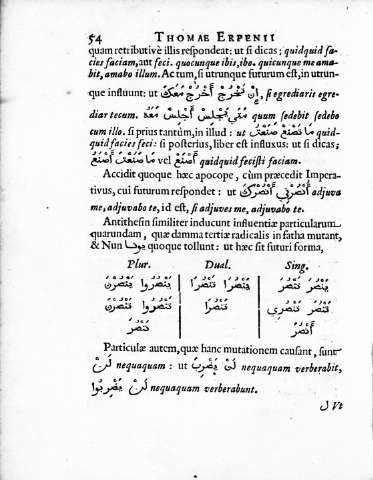 54 THOMAE ERPENII
quam retributivè illis respondeat: ut si dicas; quidquid fa-
cies faciam, aut feci. quocunque ibis, ibo. quicunque me ama-
bit, amabo illum. Ac tum, si utrunque futurum est, in utrun-
que influunt: ut إِنْ تَخْرُجْ أَخْرُجْ مَعَكَ, si egrediaris egre-
diar tecum. مَتَى تَجْلِسْ أَجْلِسْ مَعَهُ quum sedebit sedebo
cum illo. si prius tantùm, in illud: ut مَا تَصْنَعْ صَنَعْتُ quid-
quid facies feci: si posterius, liber est influxus: ut si dicas;
مَا صَنَعْتَ أَصْنَعُ vel أَصْنَعْ quidquid fecisti faciam.
Accidit quoque hæc apocope, cùm præcedit Impera-
tivus, cui futurum respondet: ut أُنْصُرْنِي أَنْصُرْكَ adjuva
me, adjuvabo te, id est, si adjuves me, adjuvabo te.
Antithesin similiter inducunt influentiæ particularum
quarundam, quæ damma tertiæ radicalis in fatha mutant,
& Nun quoque tollunt: ut hæc sit futuri forma,
Plur. Dual. Sing.
يَنْصُرُوا يَنْصُرْنَ يَنْصُرَا تَنْصُرَا يَنْصُرَ تَنْصُرَ
تَنْصُرُوا تَنْصُرْنَ تَنْصُرَا تَنْصُرَ تَنْصُرِي
نَنْصُرَ أَنْصُرَ
Particulæ autem, quæ hanc mutationem causant, sunt
لَنْ nequaquam: ut لَنْ يَضْرِبَ nequaquam verberabit,
لَنْ يَضْرِبُوا nequaquam verberabunt.
ل Vt